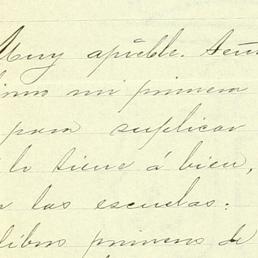 Muy apble. Señ
mi primera
para suplicar
lo tiene á bien,
las escuelas:
libro primero de